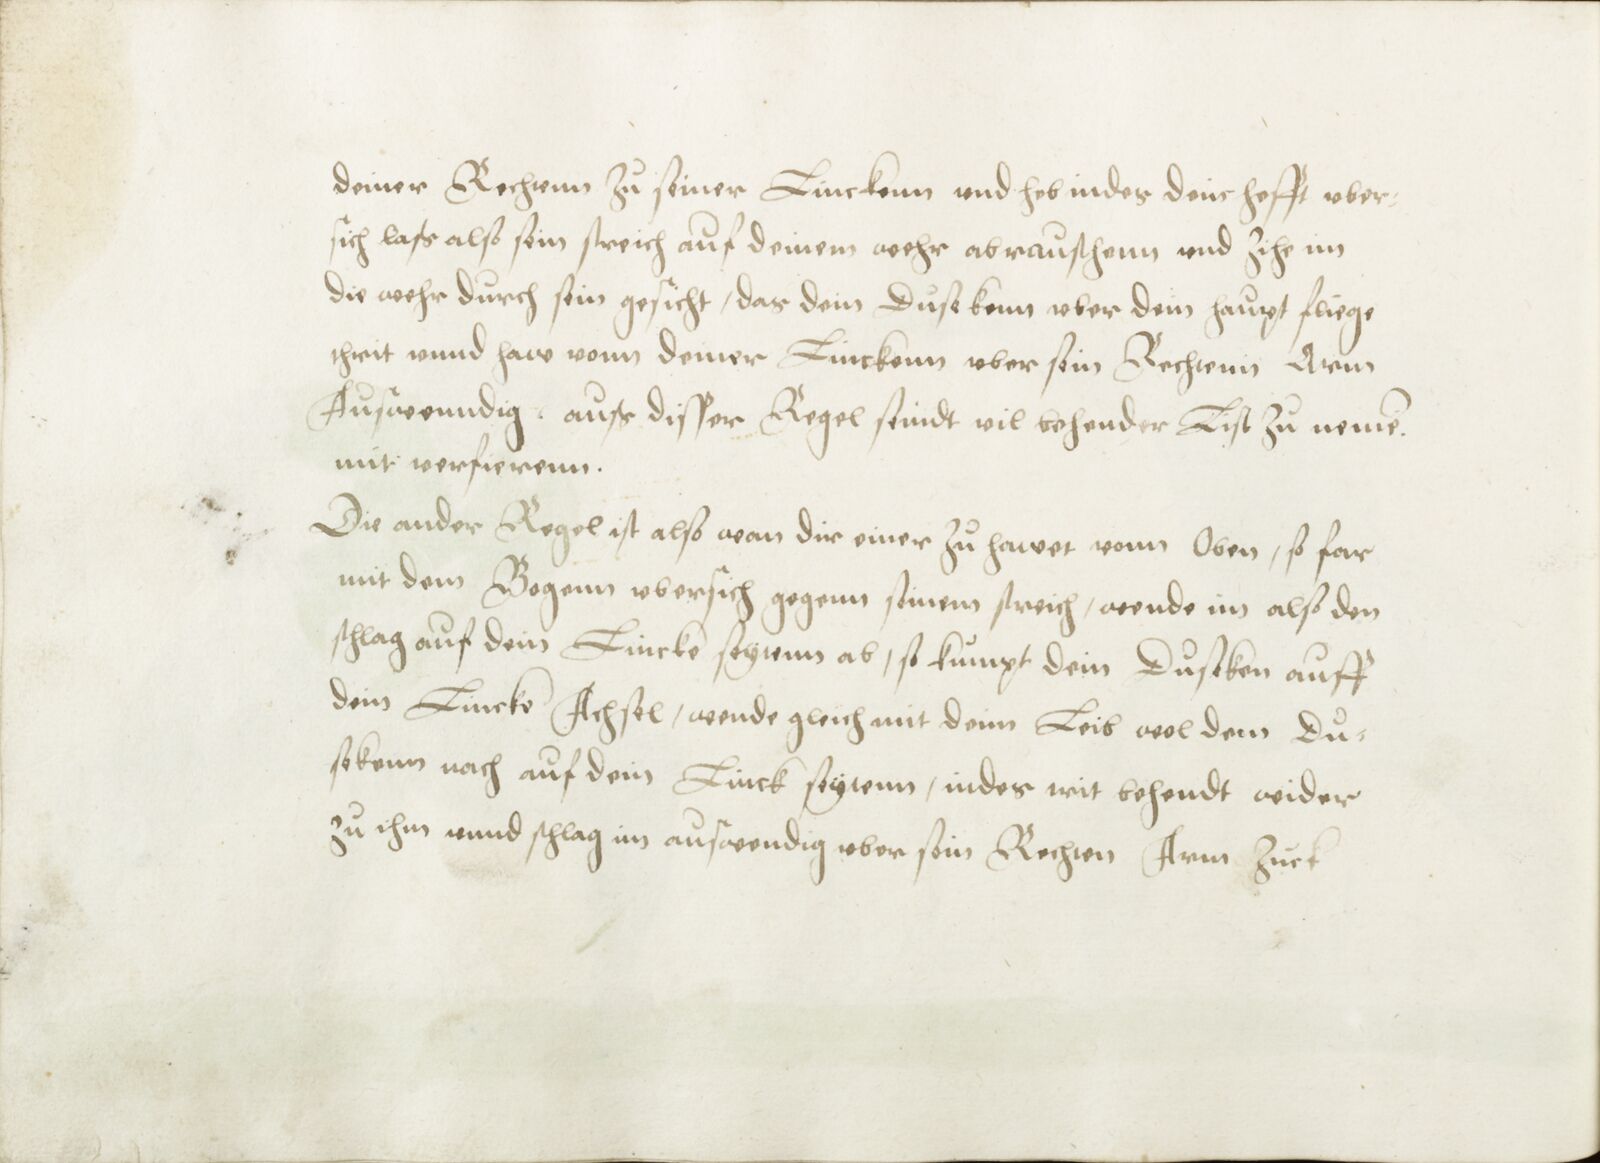 deiner Rechtenn zu seiner Linckenn vnd heb indes deinc hefft vber-
sich lass also sein streich auf deinem wehr abrauschenn vnd zihe im
die wehr durch sein gesicht / das dein Dusekenn vber dein haupt fliege
thrit vnnd haw vonn deiner Linckenn vber sein Rechtenn Arm
Auswenndig. auss disser Regel seindt vil behender List zu nemē.
mit verfierenn.
Die ander Regel ist also wan dir einer zu hawet vonn Oben / so far
mit dem Bogenn vbersich gegenn seinem streich / wende im also den
schlag auf dein Lincke seytenn ab / so kumpt dein Duseken auff
dein Lincke Achsel / wende gleich mit deim Leib wol dem Du-
sekenn nach auf dein Linck seytenn / indes trit behendt wider
zu ihm vnnd schlag im auswendig vber sein Rechten Arm zuck